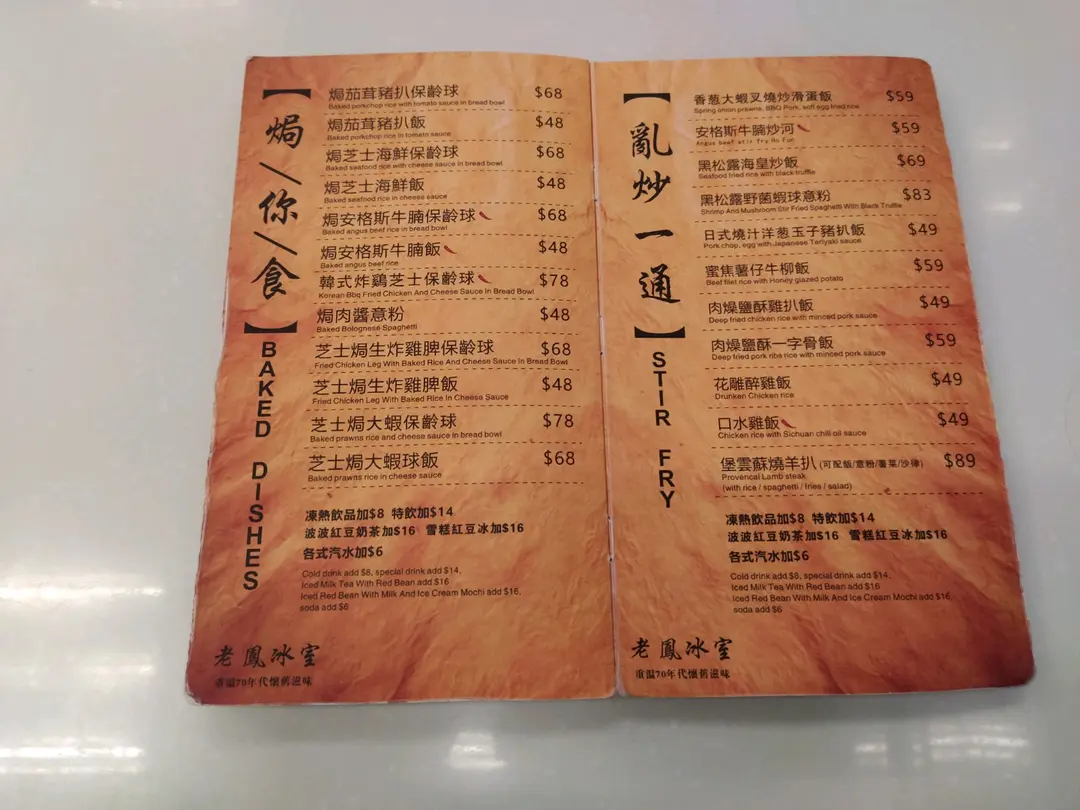 【焗\你\食】
BAKED DISHES
焗茄茸豬扒保齡球 $68
Baked porkchop rice with tomato sauce in bread bowl
焗茄茸豬扒飯 $48
Baked porkchop rice in tomato sauce
焗芝士海鮮保齡球 $68
Baked seafood rice with cheese sauce in bread bowl
焗芝士海鮮飯 $48
Baked seafood rice in cheese sauce
焗安格斯牛腩保齡球 $68
Baked angus beef rice in bread bowl
焗安格斯牛腩飯 $48
Baked angus beef rice
韓式炸鷄芝士保齡球 $78
Korean Bbq Fried Chicken And Cheese Sauce In Bread Bowl
焗肉醬意粉 $48
Baked Bolognese Spaghetti
芝士焗生炸雞脾保齡球 $68
Fried Chicken Leg With Baked Rice And Cheese Sauce In Bread Bowl
芝士焗生炸雞脾飯 $48
Fried Chicken Leg With Baked Rice In Cheese Sauce
芝士焗大蝦保齡球 $78
Baked prawns rice and cheese sauce in bread bowl
芝士焗大蝦球飯 $68
Baked prawns rice in cheese sauce
凍熱飲品加$8 特飲加$14
波波紅豆奶茶加$16 雪糕紅豆冰加$16
各式汽水加$6
Cold drink add $8, special drink add $14,
Iced Milk Tea With Red Bean add $16
Iced Red Bean With Milk And Ice Cream Mochi add $16,
soda add $6
老鳳冰室
重溫70年代懷舊滋味
【亂炒一通】
STIR FRY
香葱大蝦叉燒炒滑蛋飯 $59
Spring onion prawns, BBQ Pork, soft egg fried rice
安格斯牛腩炒河 $59
Angus beef stir fry Ho Fun
黑松露海皇炒飯 $69
Seafood fried rice with black truffle
黑松露野菌蝦球意粉 $83
Shrimp And Mushroom Stir Fried Spaghetti With Black Truffle
日式燒汁洋葱玉子豬扒飯 $49
Pork chop, egg with Japanese Teriyaki sauce
蜜焦薯仔牛柳飯 $59
Beef filet rice with Honey glazed potato
肉燥鹽酥雞扒飯 $49
Deep fried chicken rice with minced pork sauce
肉燥鹽酥一字骨飯 $59
Deep fried pork ribs rice with minced pork sauce
花雕醉雞飯 $49
Drunken Chicken rice
口水雞飯 $49
Chicken rice with Sichuan chili oil sauce
堡雲蘇燒羊扒 (可配飯/意粉/薯菜/沙律) $89
Provencal Lamb steak
(with rice / spaghetti / fries / salad)
凍熱飲品加$8 特飲加$14
波波紅豆奶茶加$16 雪糕紅豆冰加$16
各式汽水加$6
Cold drink add $8, special drink add $14,
Iced Milk Tea With Red Bean add $16
Iced Red Bean With Milk And Ice Cream Mochi add $16,
soda add $6
老鳳冰室
重溫70年代懷舊滋味